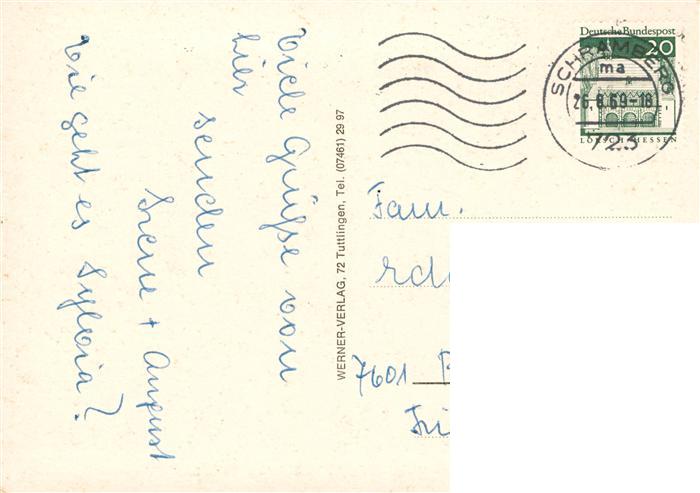 Viele Grüße von
hier
senden
Irene + August
Wie geht es Sylvia?
WERNER-VERLAG, 72 Tuttlingen, Tel. (07461) 29 97
Deutsche Bundespost
20
LORSCH/HESSEN
SCHRAMBERG
ma
26.8.69-18
723
Fam.
7601